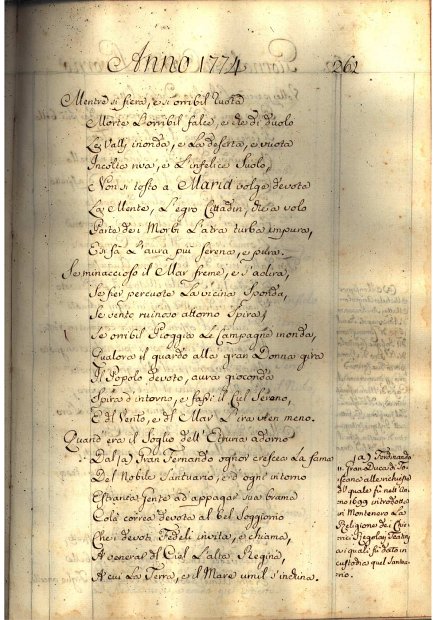 Anno 1774
262
Mentre si fiera, e si orribil ruota
Morte L'orribil falce, e di duolo
Le Valli inonda, e La deserta, e vuota
Incolta riva, e L'infelice Suolo,
Non si tosto a Maria volge devota
La Mente, L'egro Cittadin, che a volo
Parte dei Morbi L'atra turba impura,
Ed si fà L'aura più serena, e pura.
Se minaccioso il Mar freme, e s'adira,
Se fier percuote La vicina Sponda,
Se vento ruinoso attorno Spira,
Se orribil Pioggia Le Campagne inonda,
Qualora il guardo alla gran Donna gira
Il Popolo devoto, aura gioconda
Spira d'intorno, e fassi il Ciel Sereno,
E del Vento, e del Mar L'ira vien meno.
Quand'era il Soglio dell'Etruria adorno
Dal (a) Gran Fernando ognor crescea La fama
Del Nobile Santuario, e d'ogni intorno
Estrania Gente ad appagar sua brama
Colà correa devota al bel Soggiorno
Che i devoti Fedeli invita, e chiama,
A venerar del Ciel L'alta Regina,
A cui La Terra, e il Mare umil s'inchina.
(a) Ferdinando
II. Gran Duca di To-
scana alle richieste
di quale fù nell'An-
no 1699 introdotta
in Montenero La
Religione dei Che-
rici Regolari Teatini
a i quali fù dato in
custodia quel Santua-
rio.